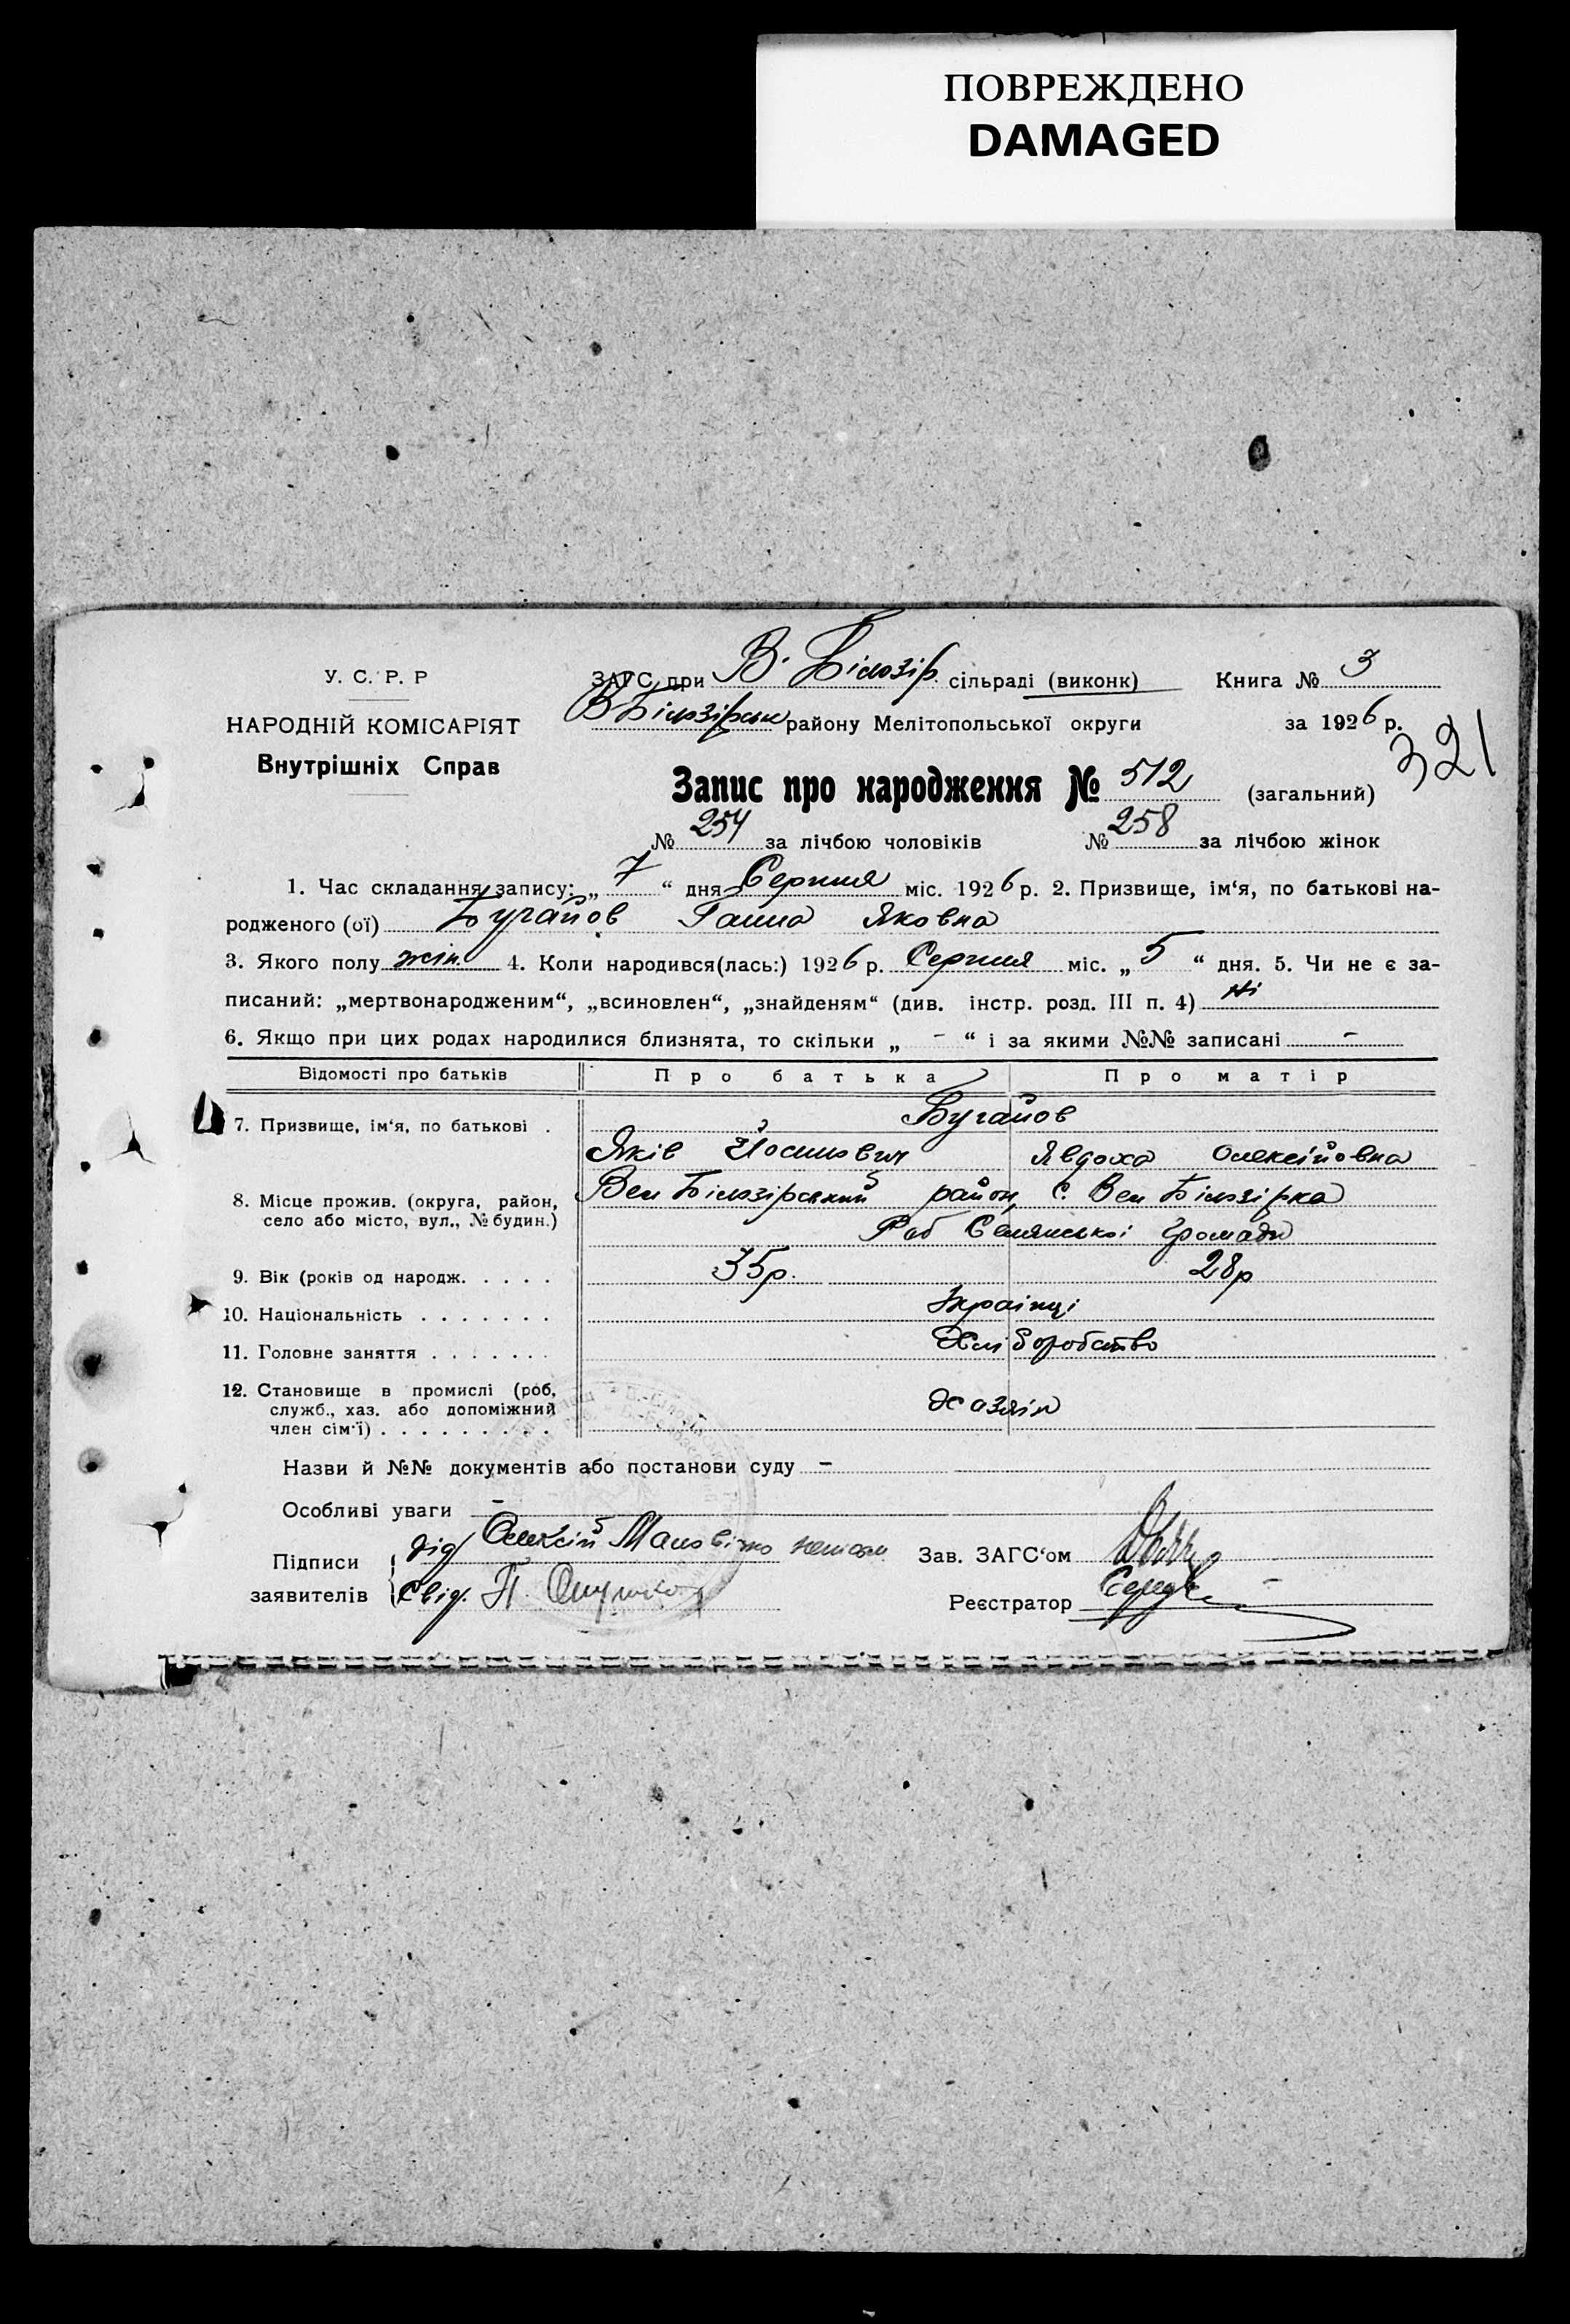 ПОВРЕЖДЕНО
DAMAGED
У. С. Р. Р
НАРОДНІЙ КОМІСАРІЯТ
Внутрішніх Справ
ЗАГС при В. Білозір. сільраді (виконк) Книга № 3
В Білозірськ району Мелітопольської округи за 1926 р.
321
Запис про народження № 512 (загальний)
№ 254 за лічбою чоловіків № 258 за лічбою жінок
1. Час складання запису: „ 7 “ дня Серпня міс. 1926 р. 2. Призвище, ім‘я, по батькові на-
родженого (ої) Бугайов Ганна Яковна
3. Якого полу жін. 4. Коли народився(лась:) 1926 р. Серпня міс. „ 5 “ дня. 5. Чи не є за-
писаний: „мертвонародженим“, „всиновлен“, „знайденям“ (див. інстр. розд. III п. 4) Ні
6. Якщо при цих родах народилися близнята, то скільки „ - “ і за якими №№ записані -
Відомості про батьків Про батька Про матір
7. Призвище, ім‘я, по батькові . Бугайов
Яків Йосипович Явдоха Олексійовна
8. Місце прожив. (округа, район, Вел Білозірський район, с. Вел Білозірка
село або місто, вул., № будин.)
Селянської Громади
9. Вік (років од народж. . . . . 35р. 28р
10. Національність . . . . . . . Українці
11. Головне заняття . . . . . . . Хліборобство
12. Становище в промислі (роб,
служб., хаз. або допоміжний хазяін
член сім‘ї) . . . . . . . . .
Назви й №№ документів або постанови суду -
Особливі уваги -
Підписи дід Олексій Зав. ЗАГС‘ом
заявителів свід. П. Реєстратор